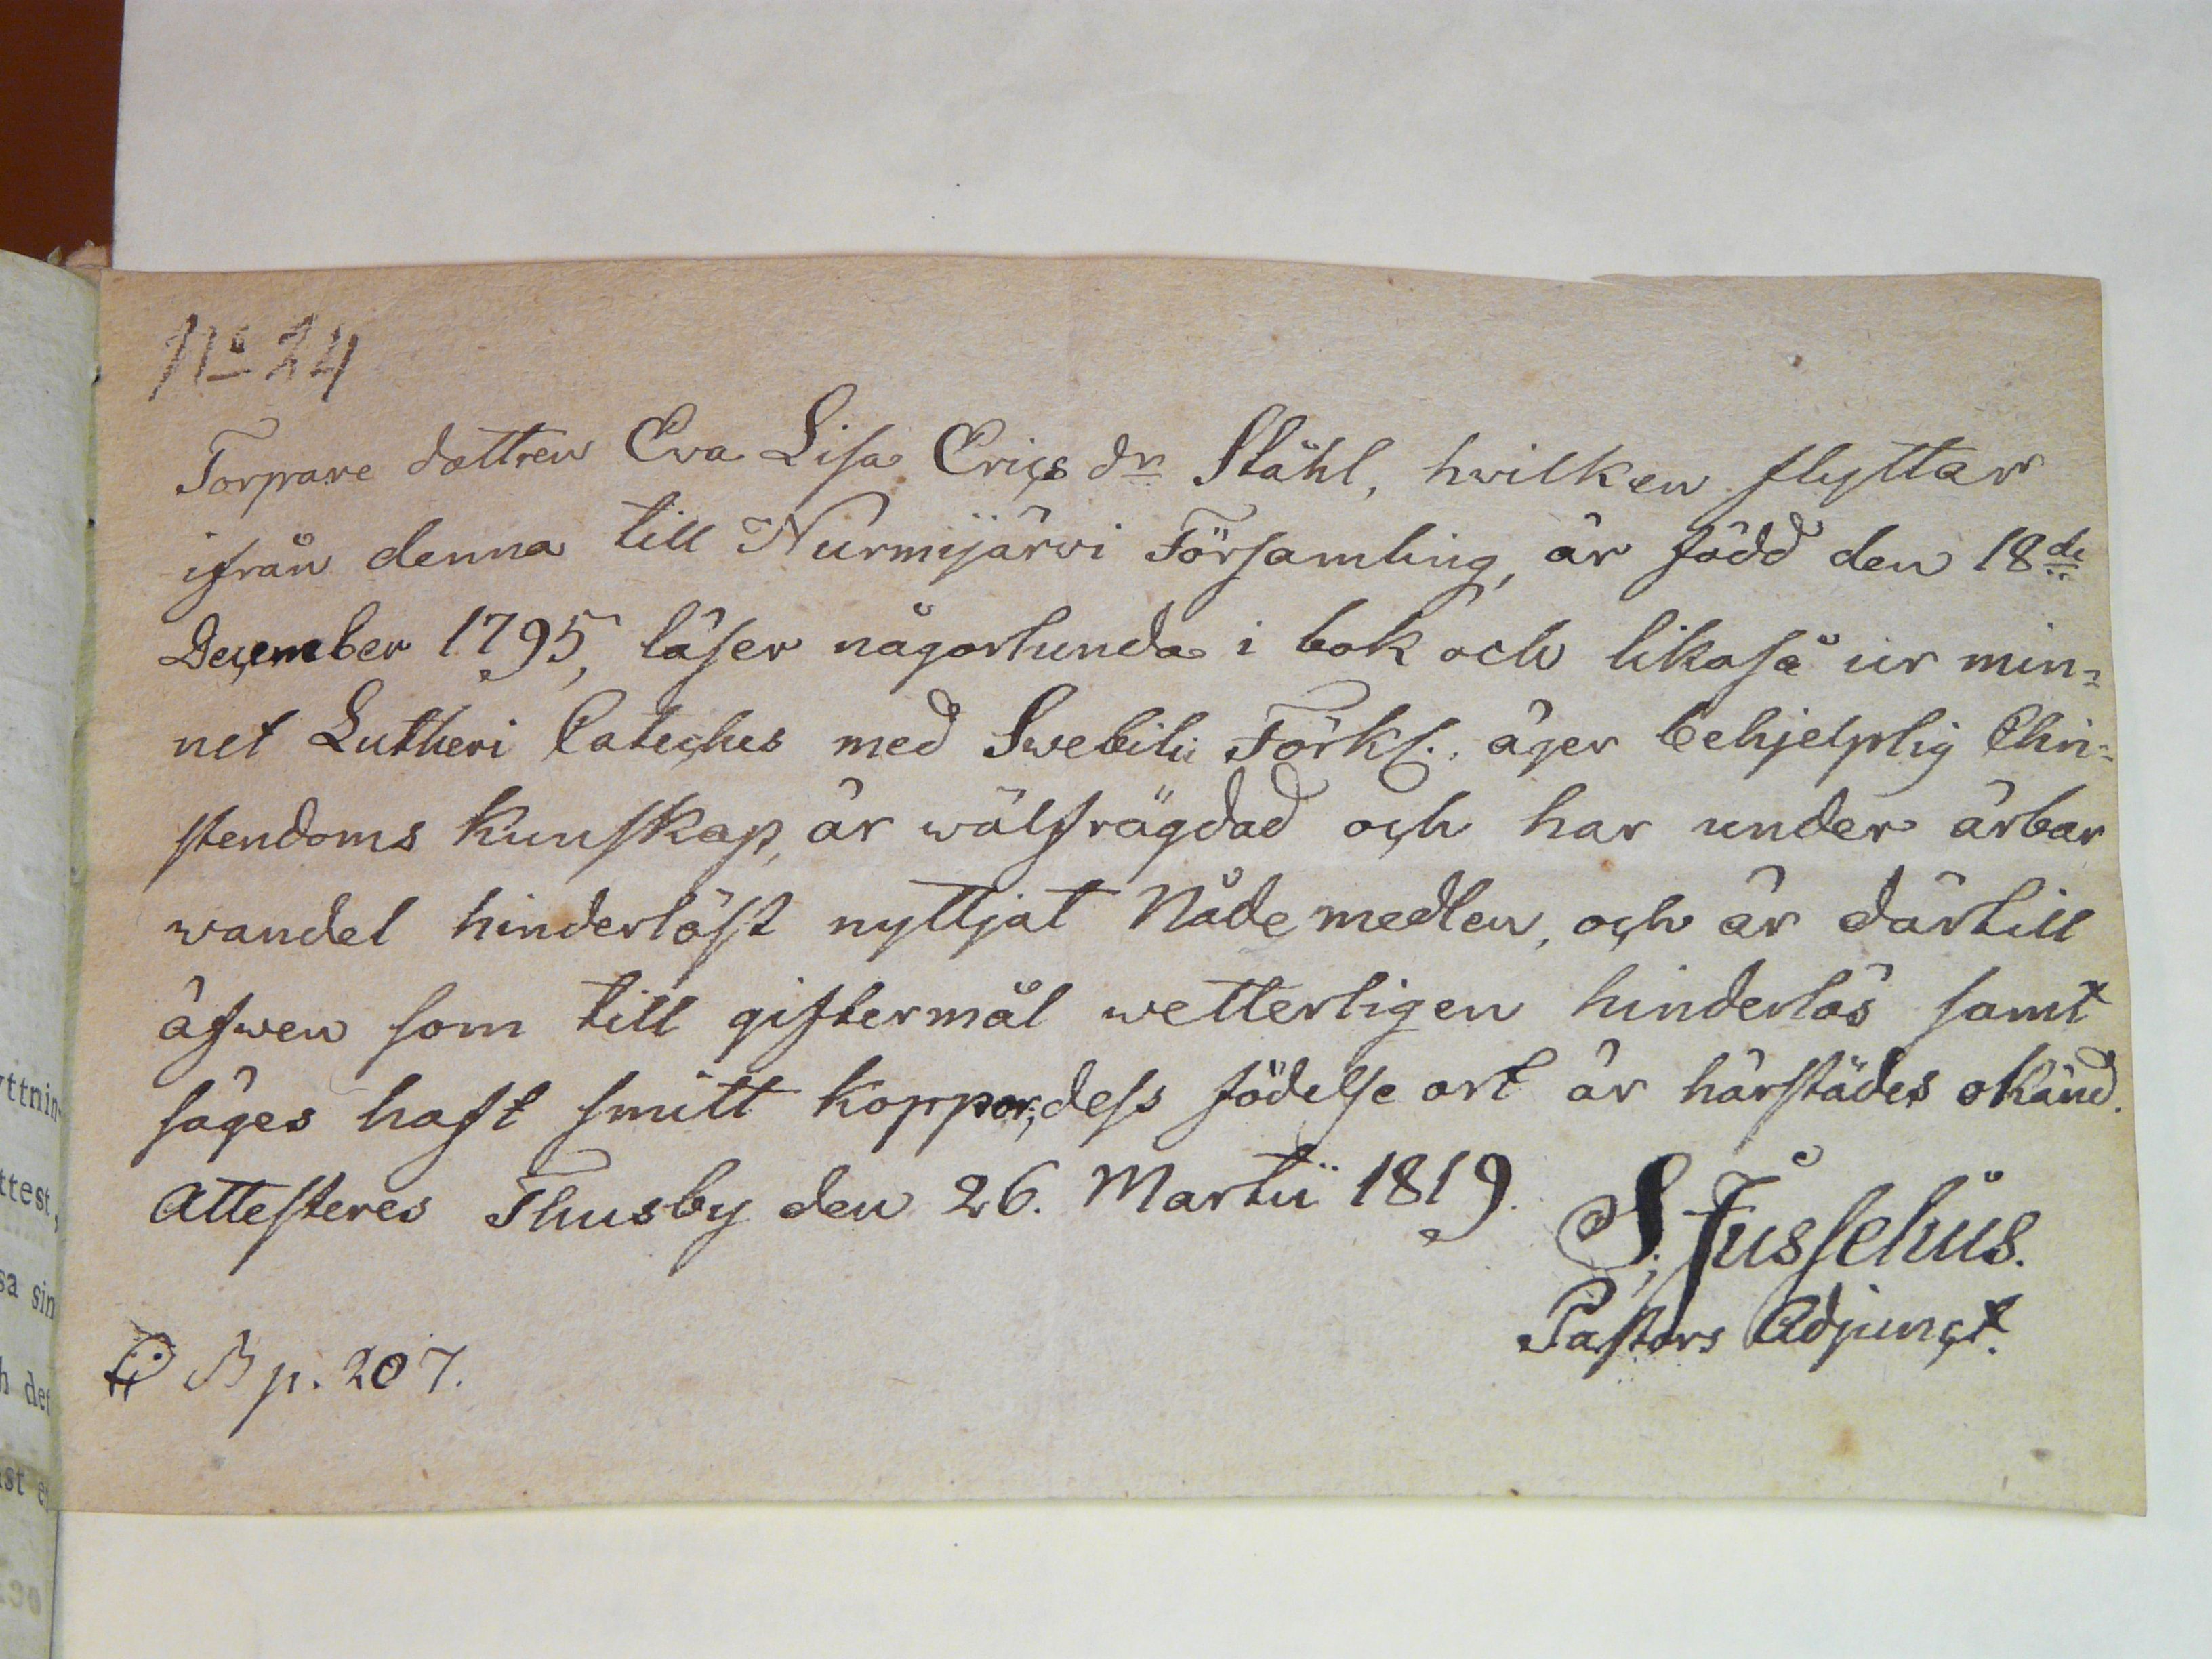 No 34
Torpare dottren Eva Lisa Erics dr Ståhl, hvilken flyttar
ifrån denna till Nurmijärvi Församling, är född den 18de
December 1795, läser någorlunda i bok och likaså ur min=
net Lutheri Cateches med Swebilii Förkl. äger behjelplig Chri=
stendoms kunskap, är wälfrägdad och har under ärbar
wandel hinderlöst nyttjat Nådemedlen, och är därtill
äfwen som till giftermål wetterligen hinderlös samt
säges haft smitt koppor; dess födelse ort är härstädes okänd.
Attesteres Thusby den 26. Martii 1819.
S. 
Pastors Adjunct.
B p. 207.
ttest,
sa sin
h det